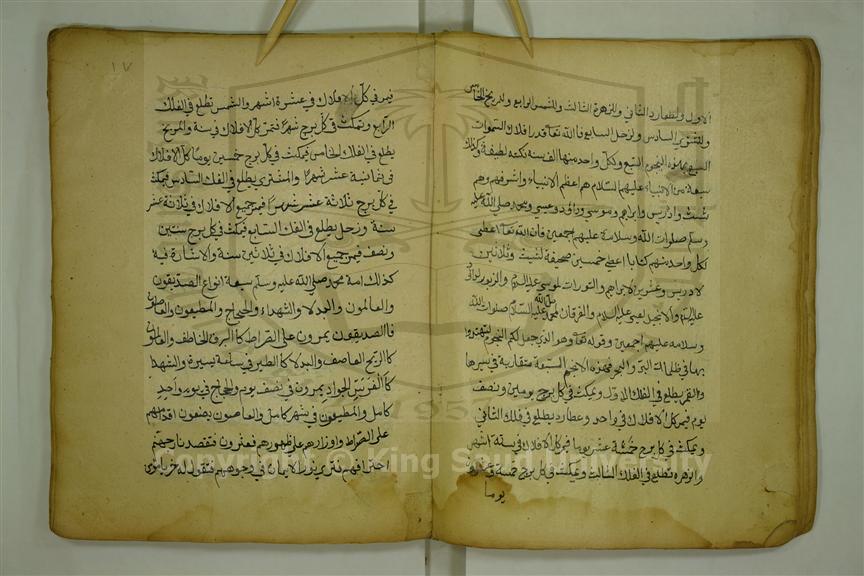 الاول ولعطارد الثاني والزهرة الثالث وللشمس الرابع وللمريخ الخامس
وللمشتري السادس ولزحل السابع فالله تعا قدر افلاك السموات
السبع بهذه النجوم السبع ولكل واحد منها الف سنة نكتة لطيفة وكذلك
سبعة من الانبياء عليهم السلام هم اعظم الانبياء واشرفهم وهم
شيث وادريس وابراهيم وموسى وداود وعيسى ومحمد صلى الله عليه
وسلم صلوات الله وسلامه عليهم اجمعين فان الله تعا اعطى
لكل واحد منهم كتابا اعطى خمسين صحيفة لشيث وثلاثين
لادريس وعشرين لابراهيم والتورات لموسى عليه السلام والزبور لداود
عليه السلام والانجيل لعيسى عليه السلام والفرقان لمحمد عليه السلام صلوات الله
وسلامه عليهم اجمعين وقوله تعا وهو الذي جعل لكم النجوم لتهتدوا
بها في ظلمات البر والبحر فهذه الانجم السبعة متقاربة في سيرها
والقمر يطلع في الفلك الاول ويمكث في كل برج يومين ونصف
يوم فيمر كل الافلاك في واحد وعطارد يطلع في فلك الثاني
ويمكث في كل برج خمسة عشر يوما فيمر كل الافلاك في ستة اشهر
والزهرة تطلع في الفلك الثالث ويمكث في كل برج خمسة وعشرين
يوما
١٧
فيمر في كل الافلاك في عشرة اشهر والشمس تطلع في الفلك
الرابع وتمكث في كل برج شهرا فتمر كل الافلاك في سنة والمريخ
يطلع في الفلك الخامس فيمكث في كل برج خمسين يوما كل الافلاك
في ثمانية عشر شهرا والمشتري يطلع في الفلك السادس فيمكث
في كل برج ثلاثة عشر شهرا فيمر جميع الافلاك في ثلاثة عشر
سنة وزحل يطلع في الفلك السابع فيمكث في كل برج سنين
ونصف فيمر جميع الافلاك في ثلاثين سنة والاشارة فيه
كذلك امة محمد صلى الله عليه وسلم سبعة انواع الصديقون
والعالمون والبدلا والشهداء والحجاج والمطيعون والعاصون
فالصديقون يمرون على الصراط كالبرق الخاطف والعالمون
كالريح العاصف والبدلا كالطير في ساعة يسيرة والشهدا
كالفرس الجواد يمرون في نصف يوم والحجاج في يوم واحد
كامل والمطيعون في شهر كامل والعاصون يضعون اقدامهم
على الصراط واوزارهم على ظهورهم فيعثرون فتقصد نار جهنم
احراقهم فترى نور الايمان في وجوههم فتقول جز يا مؤمن
Copyright © King Saud University
1957